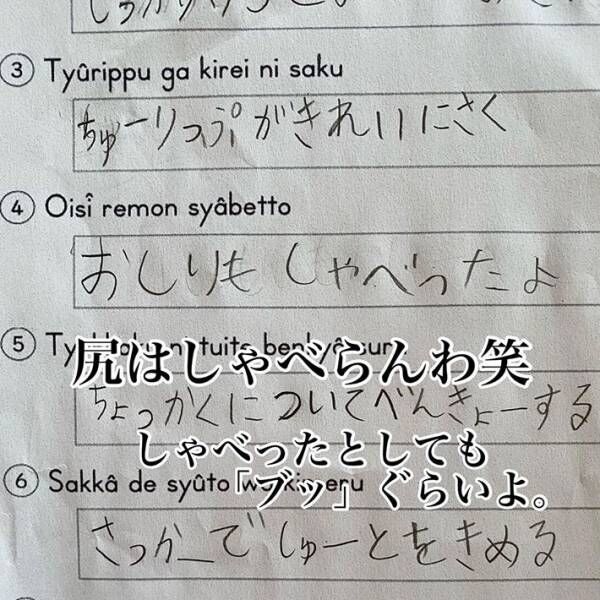 ③ Tyûrippu ga kirei ni saku
ちゅーりっぷがきれいにさく
④ Oisî remon syâbetto
おしりもしゃべったよ
⑤
尻はしゃべらんわ笑
ちょっかくについてべんきょーする
しゃべったとしても
⑥ Sakkâ de syûto
「ブッ」ぐらいよ。
さっかーでしゅーとをきめる